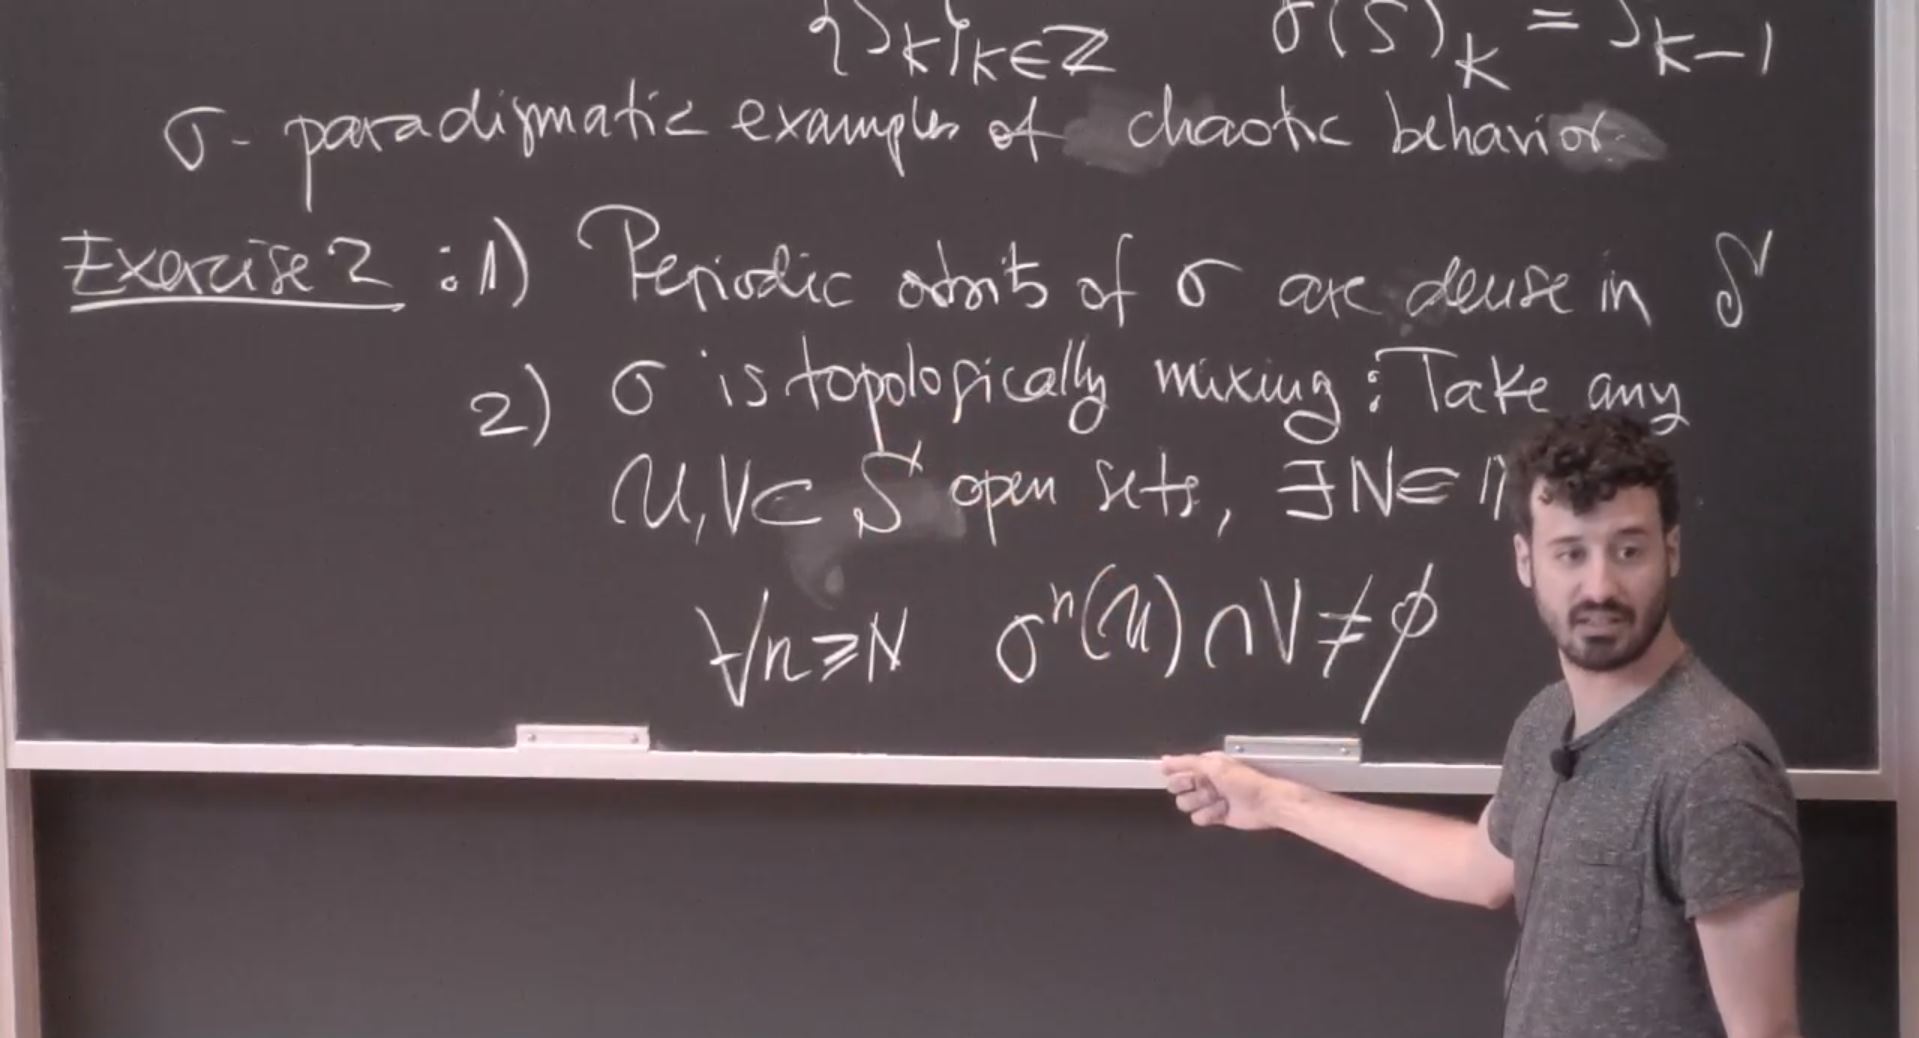 {S_k}_{k∈ℤ} σ(S)_k = S_{k-1}
σ - paradigmatic examples of chaotic behavior.
Exercise 2 : 1) Periodic orbits of σ are dense in S
2) σ is topologically mixing : Take any
U, V ⊂ S open sets, ∃ N ∈
∀n ≥ N σ^n(U) ∩ V ≠ ϕ